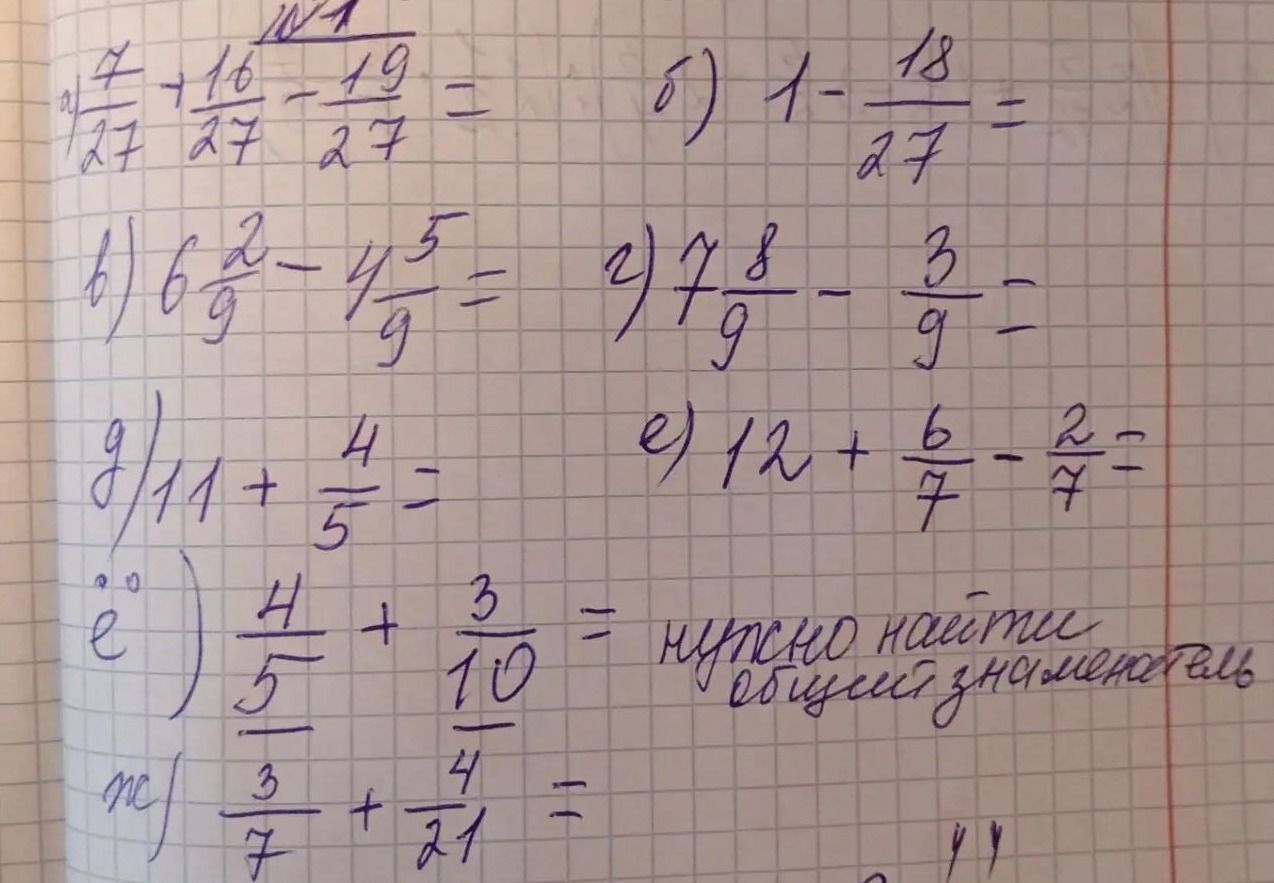 №1
а) 7/27 + 16/27 - 19/27 = б) 1 - 18/27 =
в) 6 2/9 - 4 5/9 = г) 7 8/9 - 3/9 =
д) 11 + 4/5 = е) 12 + 6/7 - 2/7 =
ё) 4/5 + 3/10 = нужно найти
общий знаменатель
ж) 3/7 + 4/21 =